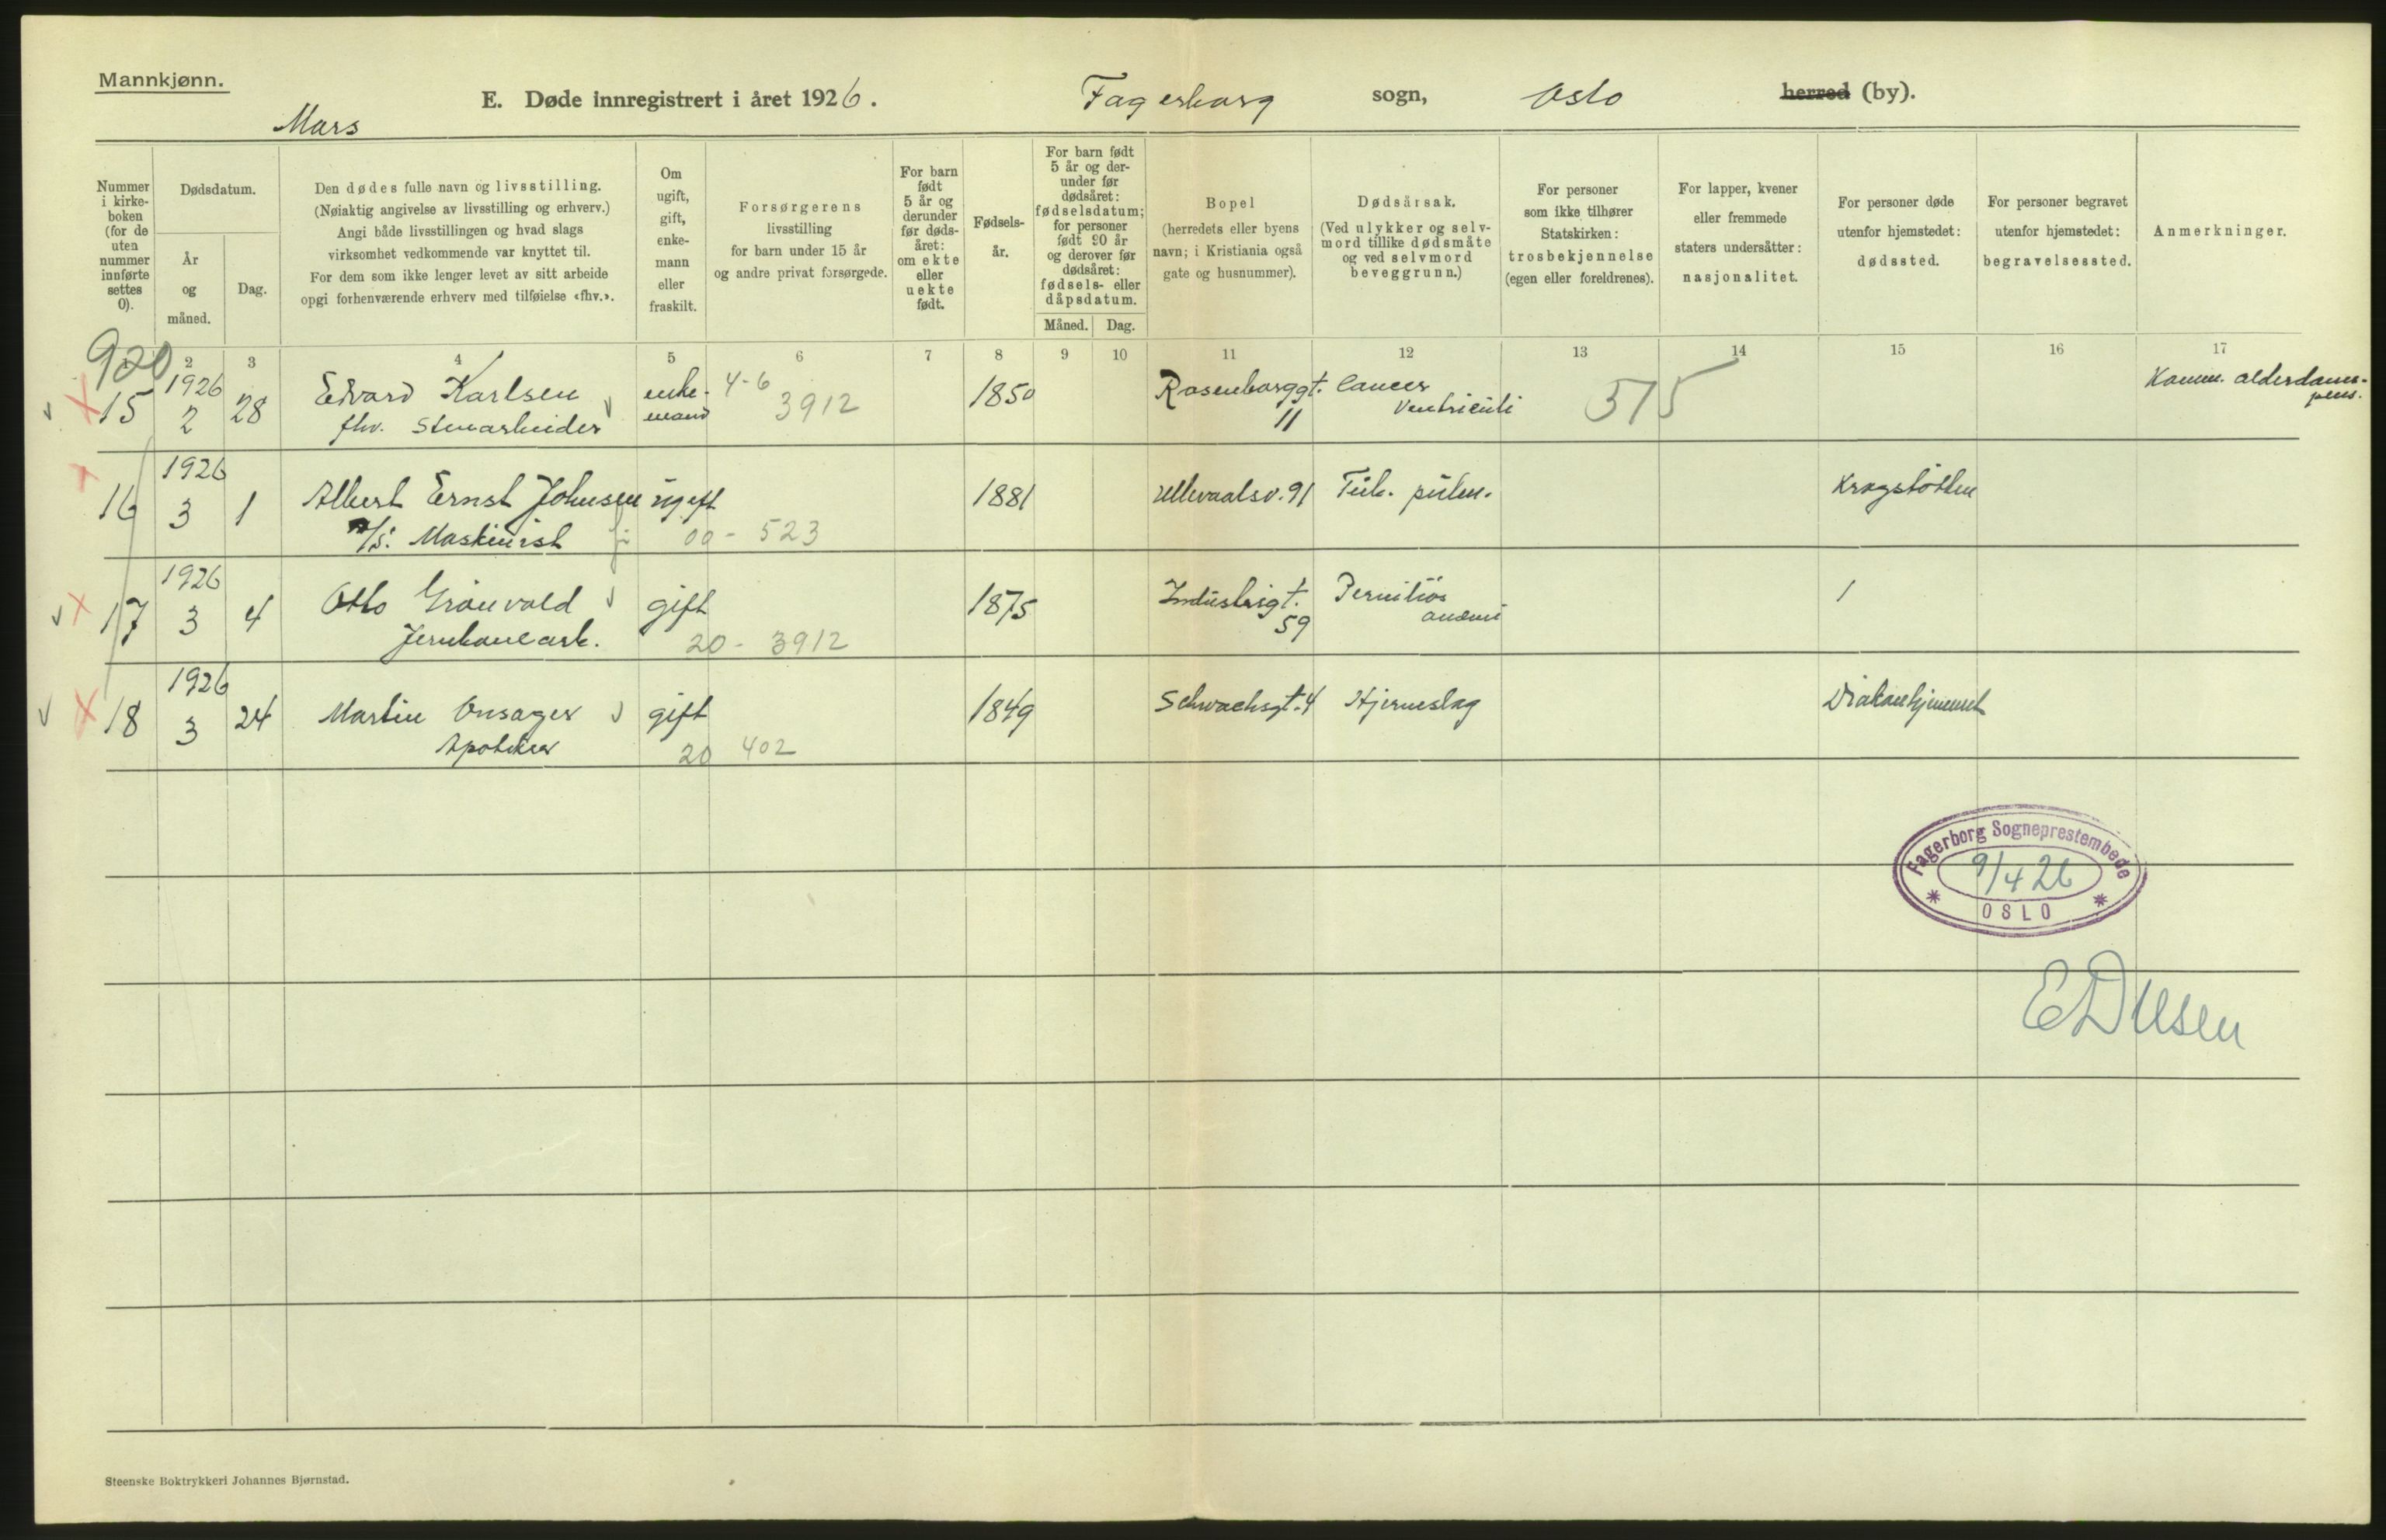 Mannkjønn.
E. Døde innregistrert i året 1926. Fagerborg sogn, Oslo herred (by).
Mars
Nummer i kirkeboken (for de uten nummer innførte settes 0).
Dødsdatum.
År og måned.
Dag.
Den dødes fulle navn og livsstilling.
(Nøiaktig angivelse av livsstilling og erhverv.)
Angi både livsstillingen og hvad slags
virksomhet vedkommende var knyttet til.
For dem som ikke lenger levet av sitt arbeide
opgi forhenværende erhverv med tilføielse «fhv.».
Om ugift, gift, enkemann eller fraskilt.
Forsørgerens
livsstilling
for barn under 15 år
og andre privat forsørgede.
For barn født 5 år og derunder før dødsåret: om ekte eller uekte født.
Fødselsår.
For barn født 5 år og derunder før dødsåret: fødselsdatum; for personer født 90 år og derover før dødsåret: fødsels- eller dåpsdatum.
Måned. Dag.
Bopel
(herredets eller byens
navn; i Kristiania også
gate og husnummer).
Dødsårsak.
(Ved ulykker og selvmord tillike dødsmåte og ved selvmord beveggrunn.)
For personer
som ikke tilhører
Statskirken:
trosbekjennelse
(egen eller foreldrenes).
For lapper, kvener
eller fremmede
staters undersåtter:
nasjonalitet.
For personer døde
utenfor hjemstedet:
dødssted.
For personer begravet
utenfor hjemstedet:
begravelsessted.
Anmerkninger.
1 2 3 4 5 6 7 8 9 10 11 12 13 14 15 16 17
920
15 1926 2 28 Edvard Karlsen enke- 4-6 3912 1850 Rosenborggt. Cancer 515 Komm. alderdoms-
fhv. Stenarbeider mand 11 ventriculi pens.
16 1926 3 1 Albert Ernst Johnsen ugift 1881 Ullevaalsv. 91 Tub. pulm. Kragstøtten
Maskinist 00 - 523
17 1926 3 4 Otto Grønvold gift 1875 Industrigt. Perniciøs
Jernbanearb. 20 - 3912 59 anæmi
18 1926 3 24 Martin Onsager gift 1849 Schwachsgt. 4 Hjerneslag Diakonhjemmet
Apoteker 20 402
Fagerborg Sogneprestembede
9/4 26
OSLO
Steenske Boktrykkeri Johannes Bjørnstad.